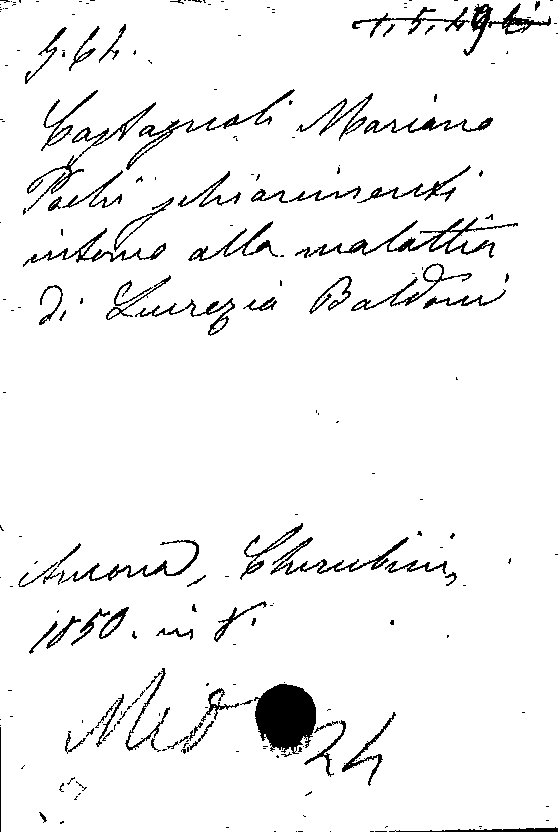 Castagnoli Mariano
Pochi schiarimenti
intorno alla malattia
di Lucrezia Baldoni
Ancona, Cherubini,
1850. in 8.
Med 24